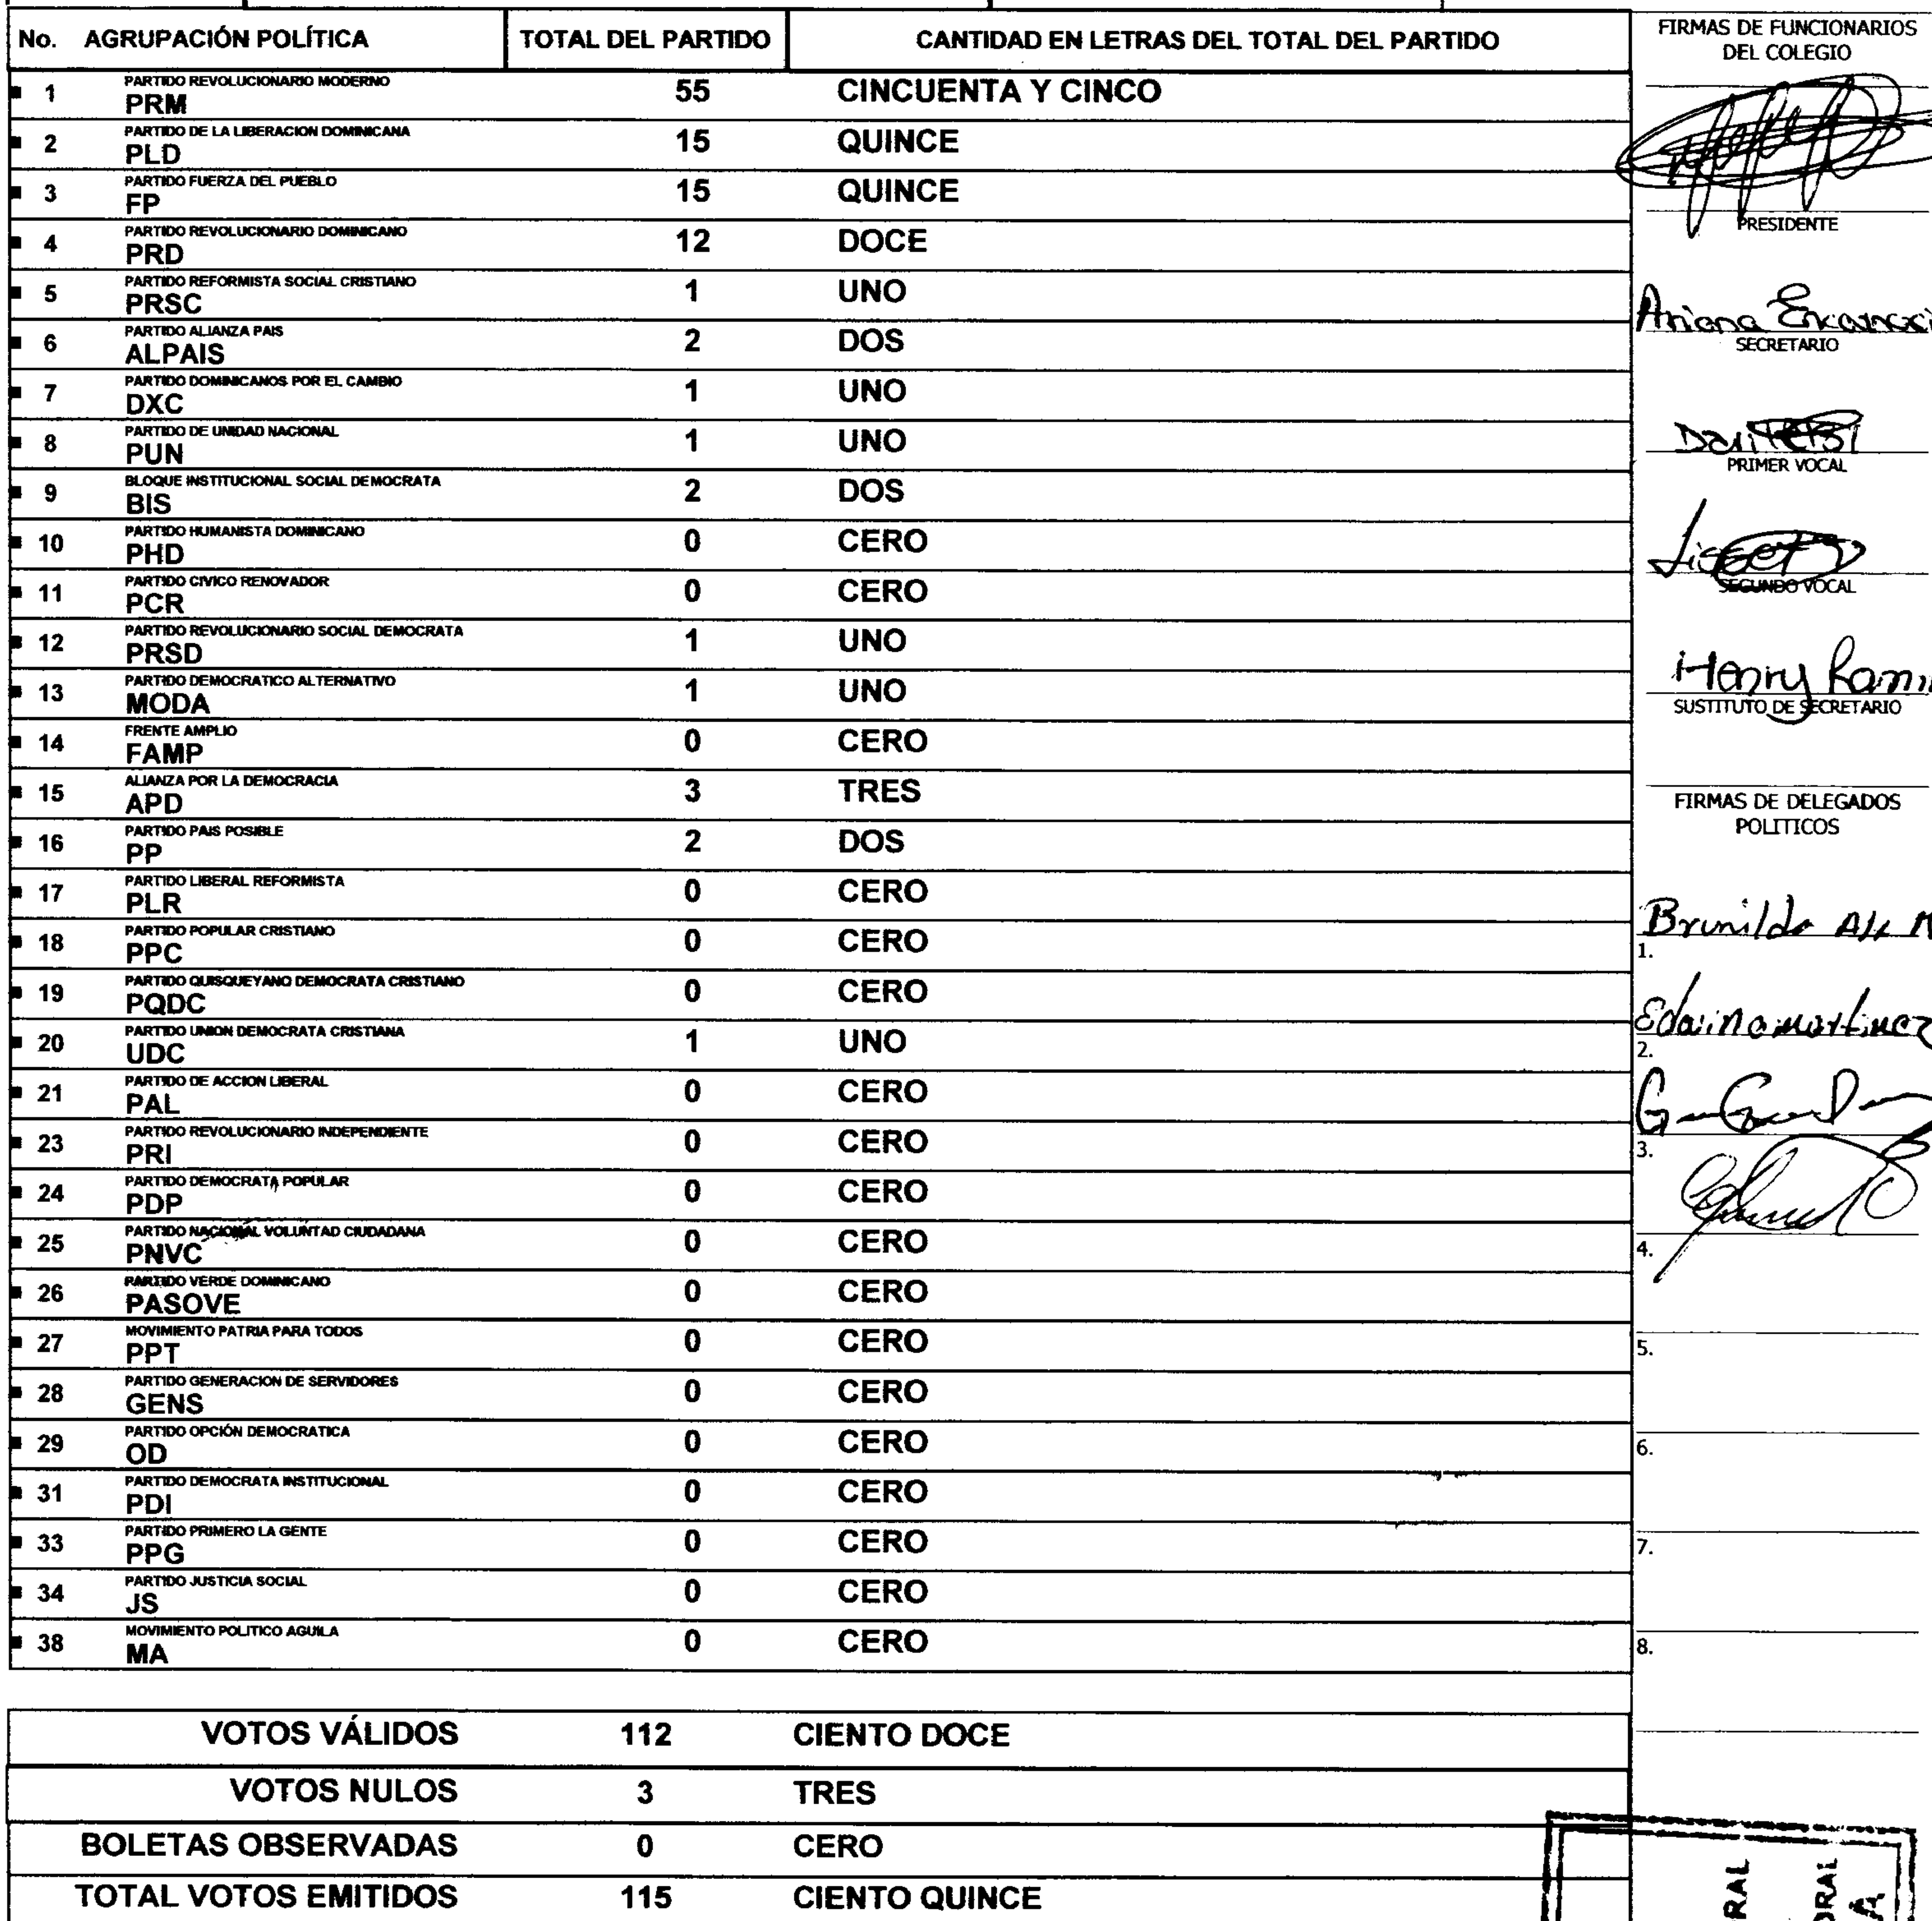 No. AGRUPACIÓN POLÍTICA TOTAL DEL PARTIDO CANTIDAD EN LETRAS DEL TOTAL DEL PARTIDO
PARTIDO REVOLUCIONARIO MODERNO
1 PRM 55 CINCUENTA Y CINCO
PARTIDO DE LA LIBERACION DOMINICANA
2 PLD 15 QUINCE
PARTIDO FUERZA DEL PUEBLO
3 FP 15 QUINCE
PARTIDO REVOLUCIONARIO DOMINICANO
4 PRD 12 DOCE
PARTIDO REFORMISTA SOCIAL CRISTIANO
5 PRSC 1 UNO
PARTIDO ALIANZA PAIS
6 ALPAIS 2 DOS
PARTIDO DOMINICANOS POR EL CAMBIO
7 DXC 1 UNO
PARTIDO DE UNIDAD NACIONAL
8 PUN 1 UNO
BLOQUE INSTITUCIONAL SOCIAL DEMOCRATA
9 BIS 2 DOS
PARTIDO HUMANISTA DOMINICANO
10 PHD 0 CERO
PARTIDO CIVICO RENOVADOR
11 PCR 0 CERO
PARTIDO REVOLUCIONARIO SOCIAL DEMOCRATA
12 PRSD 1 UNO
PARTIDO DEMOCRATICO ALTERNATIVO
13 MODA 1 UNO
FRENTE AMPLIO
14 FAMP 0 CERO
ALIANZA POR LA DEMOCRACIA
15 APD 3 TRES
PARTIDO PAIS POSIBLE
16 PP 2 DOS
PARTIDO LIBERAL REFORMISTA
17 PLR 0 CERO
PARTIDO POPULAR CRISTIANO
18 PPC 0 CERO
PARTIDO QUISQUEYANO DEMOCRATA CRISTIANO
19 PQDC 0 CERO
PARTIDO UNION DEMOCRATA CRISTIANA
20 UDC 1 UNO
PARTIDO DE ACCION LIBERAL
21 PAL 0 CERO
PARTIDO REVOLUCIONARIO INDEPENDIENTE
23 PRI 0 CERO
PARTIDO DEMOCRATA POPULAR
24 PDP 0 CERO
PARTIDO NACIONAL VOLUNTAD CIUDADANA
25 PNVC 0 CERO
PARTIDO VERDE DOMINICANO
26 PASOVE 0 CERO
MOVIMIENTO PATRIA PARA TODOS
27 PPT 0 CERO
PARTIDO GENERACION DE SERVIDORES
28 GENS 0 CERO
PARTIDO OPCIÓN DEMOCRATICA
29 OD 0 CERO
PARTIDO DEMOCRATA INSTITUCIONAL
31 PDI 0 CERO
PARTIDO PRIMERO LA GENTE
33 PPG 0 CERO
PARTIDO JUSTICIA SOCIAL
34 JS 0 CERO
MOVIMIENTO POLITICO AGUILA
38 MA 0 CERO
VOTOS VÁLIDOS 112 CIENTO DOCE
VOTOS NULOS 3 TRES
BOLETAS OBSERVADAS 0 CERO
TOTAL VOTOS EMITIDOS 115 CIENTO QUINCE
FIRMAS DE FUNCIONARIOS
DEL COLEGIO
PRESIDENTE
Ariana
SECRETARIO
PRIMER VOCAL
SEGUNDO VOCAL
Henry
SUSTITUTO DE SECRETARIO
FIRMAS DE DELEGADOS
POLITICOS
Brunilda
1.
martinez
2.
3.
4.
5.
6.
7.
8.